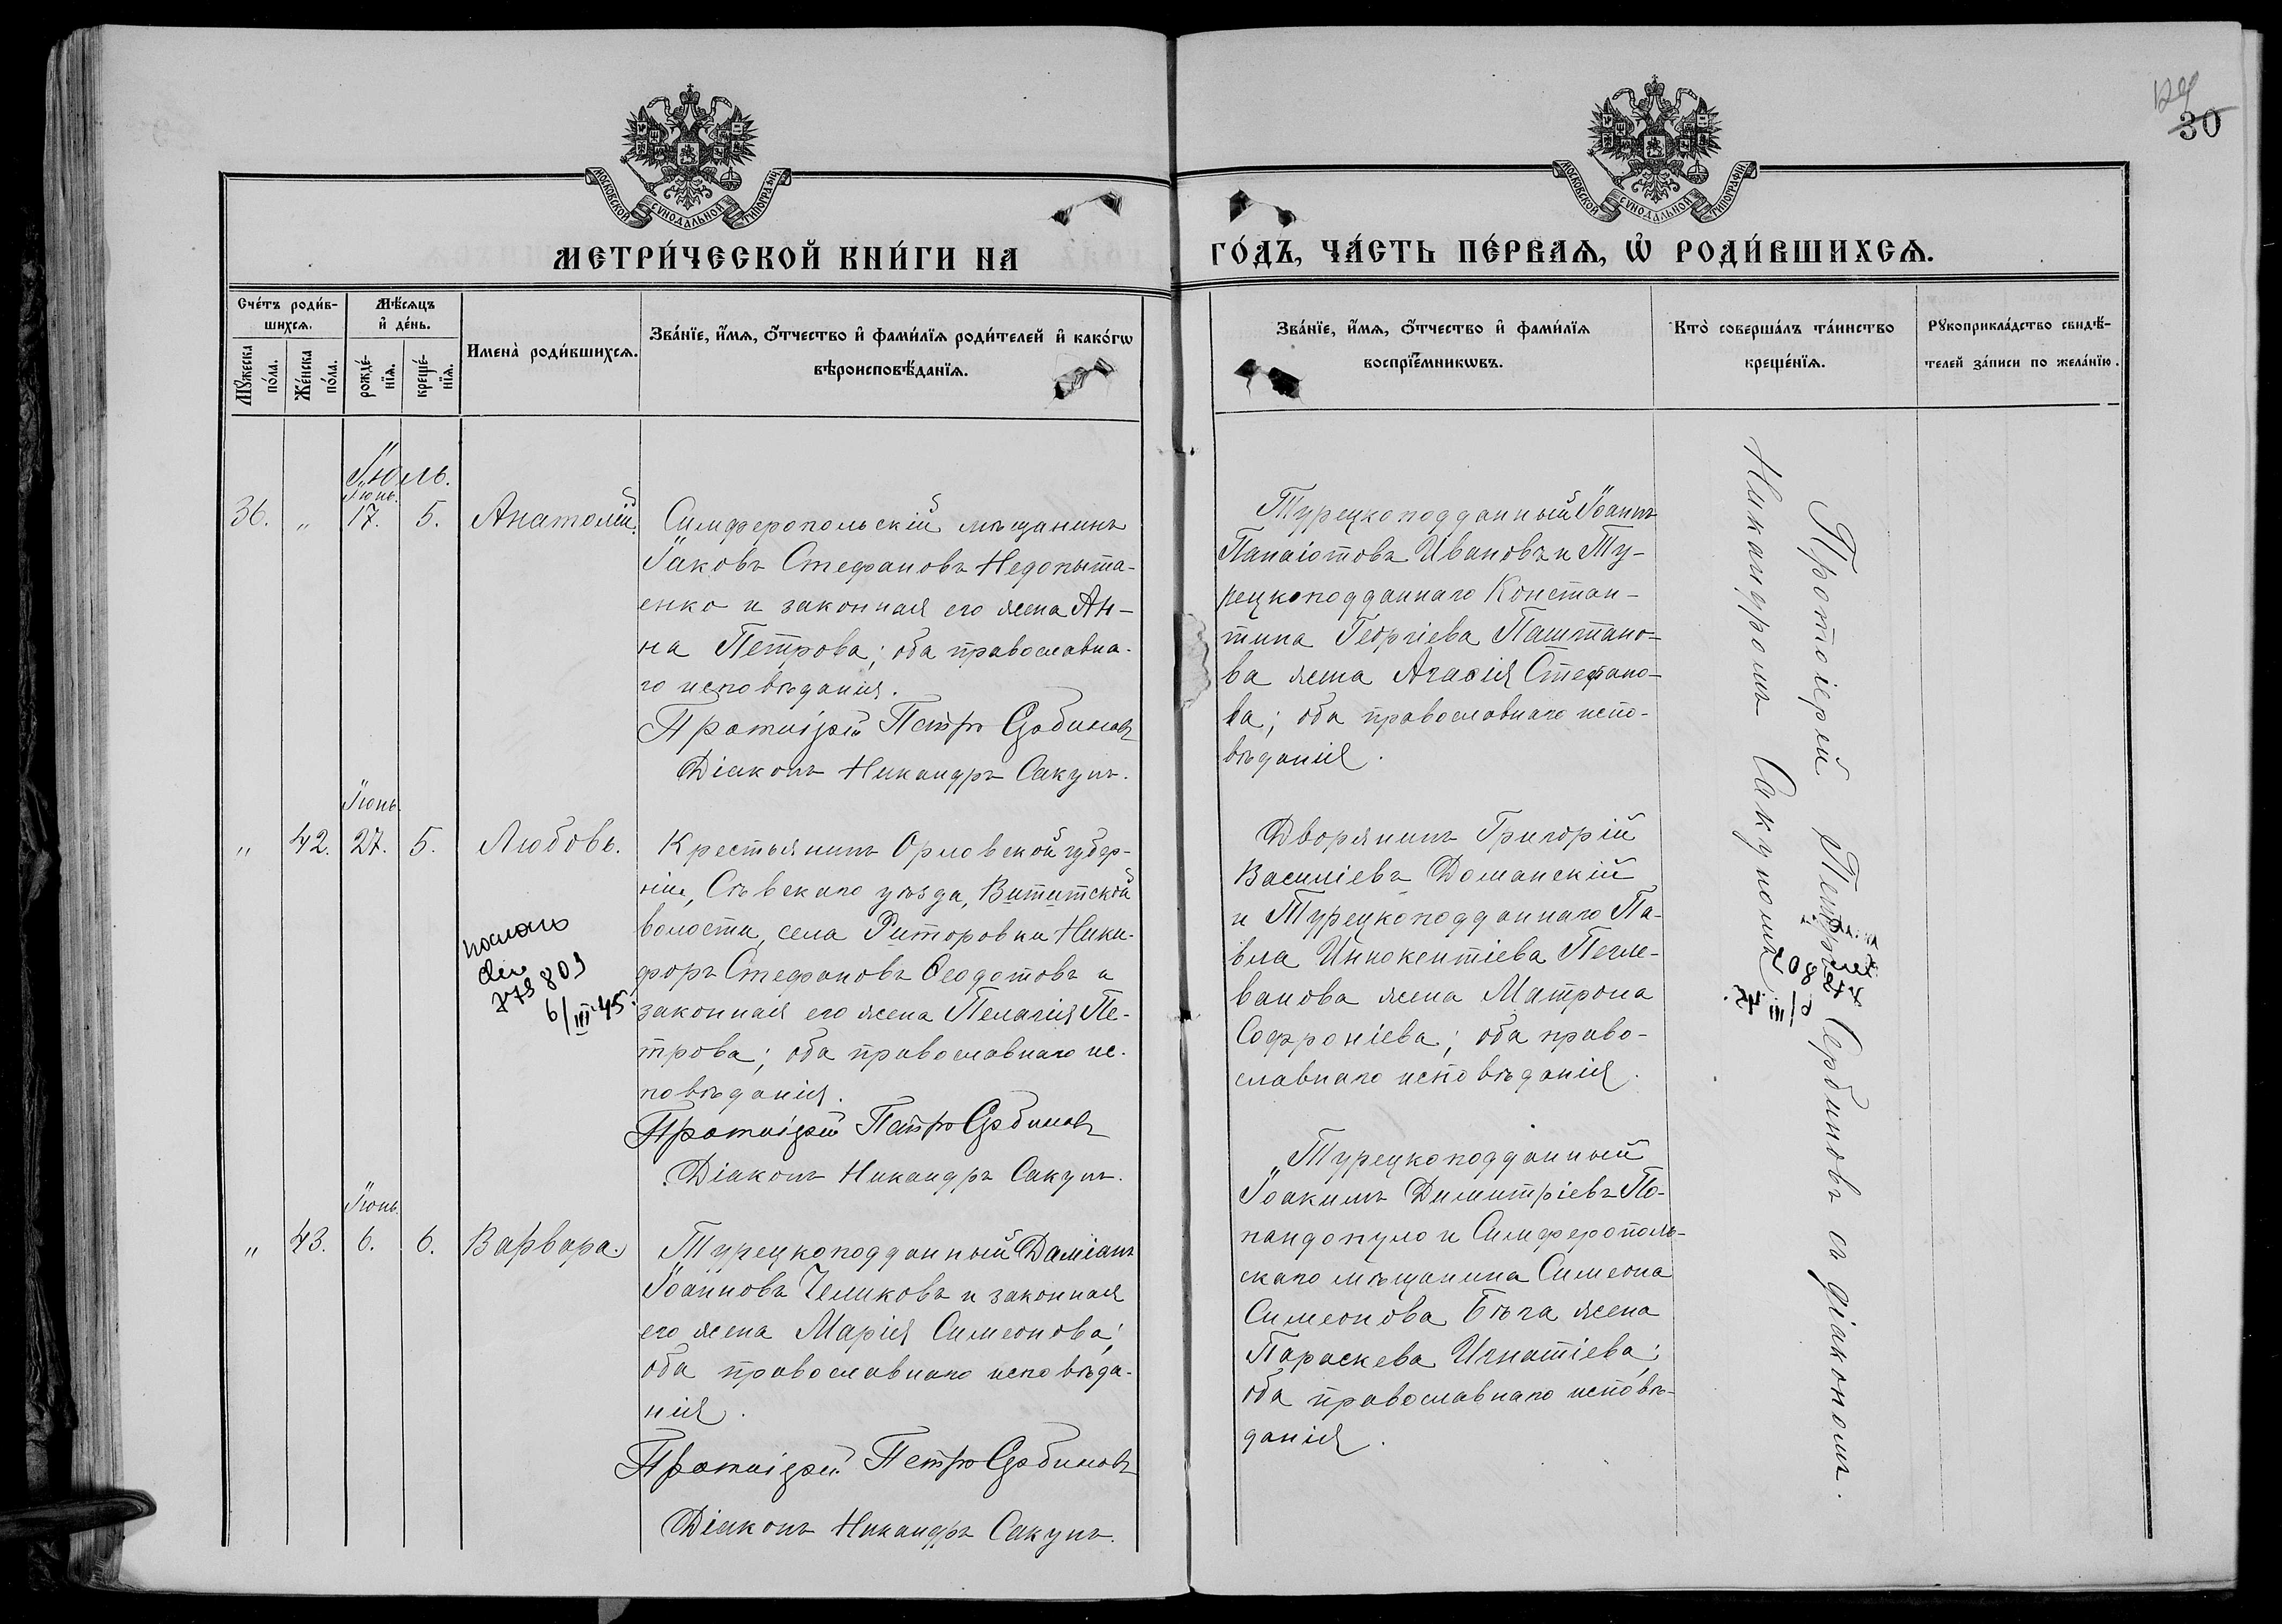 МОСКОВСКОЙ СУНОДАЛЬНОЙ ТИПОГРАФІИ
МОСКОВСКОЙ СУНОДАЛЬНОЙ ТИПОГРАФІИ
30
МЕТРИ́ЧЕСКОЙ КНИ́ГИ НА
ГО́ДЪ, ЧА́СТЬ ПЕ́РВАѦ, Ѡ҆ РОДИ́ВШИХСѦ.
Сче́тъ роди́в-
шихсѧ.
Мꙋ́жеска
по́ла.
Же́нска
по́ла.
Мѣ́сѧцъ
и҆ де́нь.
рожде́-
нїѧ.
креще́-
нїѧ.
Имена̀ роди́вшихсѧ.
Зва́нїе, и҆́мѧ, ѻ҆́тчество и҆ фами́лїѧ роди́телей и҆ како́гѡ
вѣроисповѣ́данїѧ.
Зва́нїе, и҆́мѧ, ѻ҆́тчество и҆ фами́лїѧ
воспрїе́мникѡвъ.
Кто̀ соверша́лъ та́инство
креще́нїѧ.
Рꙋкоприкла́дство свидѣ́-
телей за́писи по жела́нїю.
Іюль.
Іюнь.
36. " 17. 5. Анатолій.
Симферопольскій мѣщанинъ
Іаковъ Стефановъ Недопыта-
енко и законная его жена Ан-
на Петрова; оба православна-
го исповѣданія.
Протоіерей Петръ Сербиновъ
Діаконъ Никандръ Сакунъ.
Турецкоподданный Іоаннъ
Панаіотовъ Ивановъ и Ту-
рецкоподданнаго Констан-
тина Георгіева Паштано-
ва жена Агаѳія Стефано-
ва; оба православнаго испо-
вѣданія.
Іюнь.
" 42. 27. 5. Любовь.
Крестьянинъ Орловской губер-
ніи, Сѣвскаго уѣзда, Вититской
волости, села Риторовки Ники-
форъ Стефановъ Ѳеодотовъ и
законная его жена Пелагія Пе-
трова; оба православнаго ис-
повѣданія.
Протоіерей Петръ Сербиновъ
Діаконъ Никандръ Сакунъ.
6/III 45.
Дворянинъ Григорій
Василіевъ Доманскій
и Турецкоподданнаго Па-
вла Иннокентіева Пегле-
ванова жена Матрона
Софроніева; оба право-
славнаго исповѣданія.
Іюнь.
" 43. 6. 6. Варвара.
Турецкоподданный Даміанъ
Іоанновъ Челиковъ и законная
его жена Марія Симеонова;
оба православнаго исповѣда-
нія.
Протоіерей Петръ Сербиновъ
Діаконъ Никандръ Сакунъ.
Турецкоподданный
Іоакимъ Димитріевъ По-
пандопуло и Симферополь-
скаго мѣщанина Симеона
Симеонова Бѣга жена
Параскева Игнатіева;
оба православнаго исповѣ-
данія.
Протоіерей Петръ Сербиновъ съ діакономъ
Никандромъ Сакуномъ.